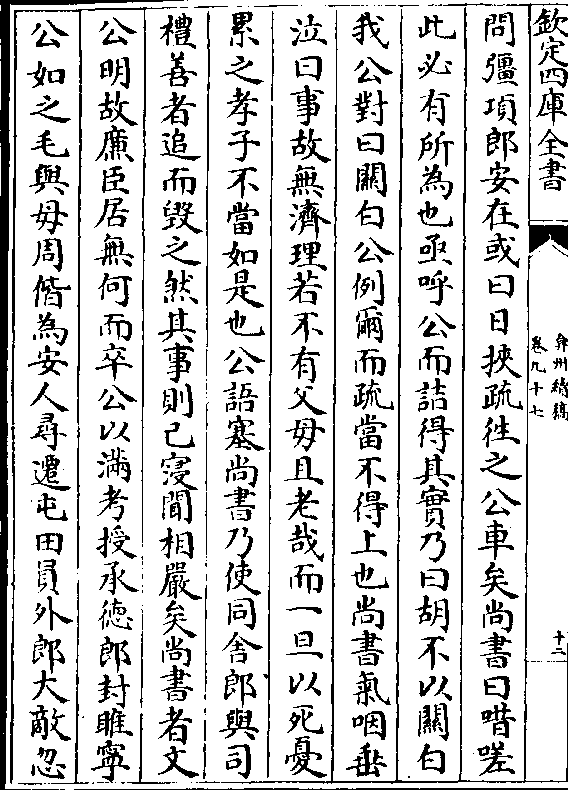 欽定四庫全書
弇州續稿
卷九十七
十二
問彊項郎安在或曰日挾疏徃之公車矣尚書曰唶嗟
此必有所為也亟呼公而詰得其實乃曰胡不以關白
我公對曰關白公例爾而疏當不得上也尚書氣咽垂
泣曰事故無濟理若不有父母且老哉而一旦以死憂
累之孝子不當如是也公語塞尚書乃使同舍郎與司
禮善者追而毀之然其事則已寖聞相嚴矣尚書者文
公明故廉臣居無何而卒公以滿考授承徳郎封睢寧
公如之毛與毋周偕為安人尋遷屯田員外郎大敵忽